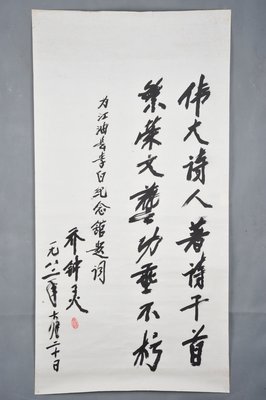 伟大诗人著诗千首
繁荣文藝功垂不朽
为江油县李白纪念舘题词
乔钟灵
一九八二年 月二十日